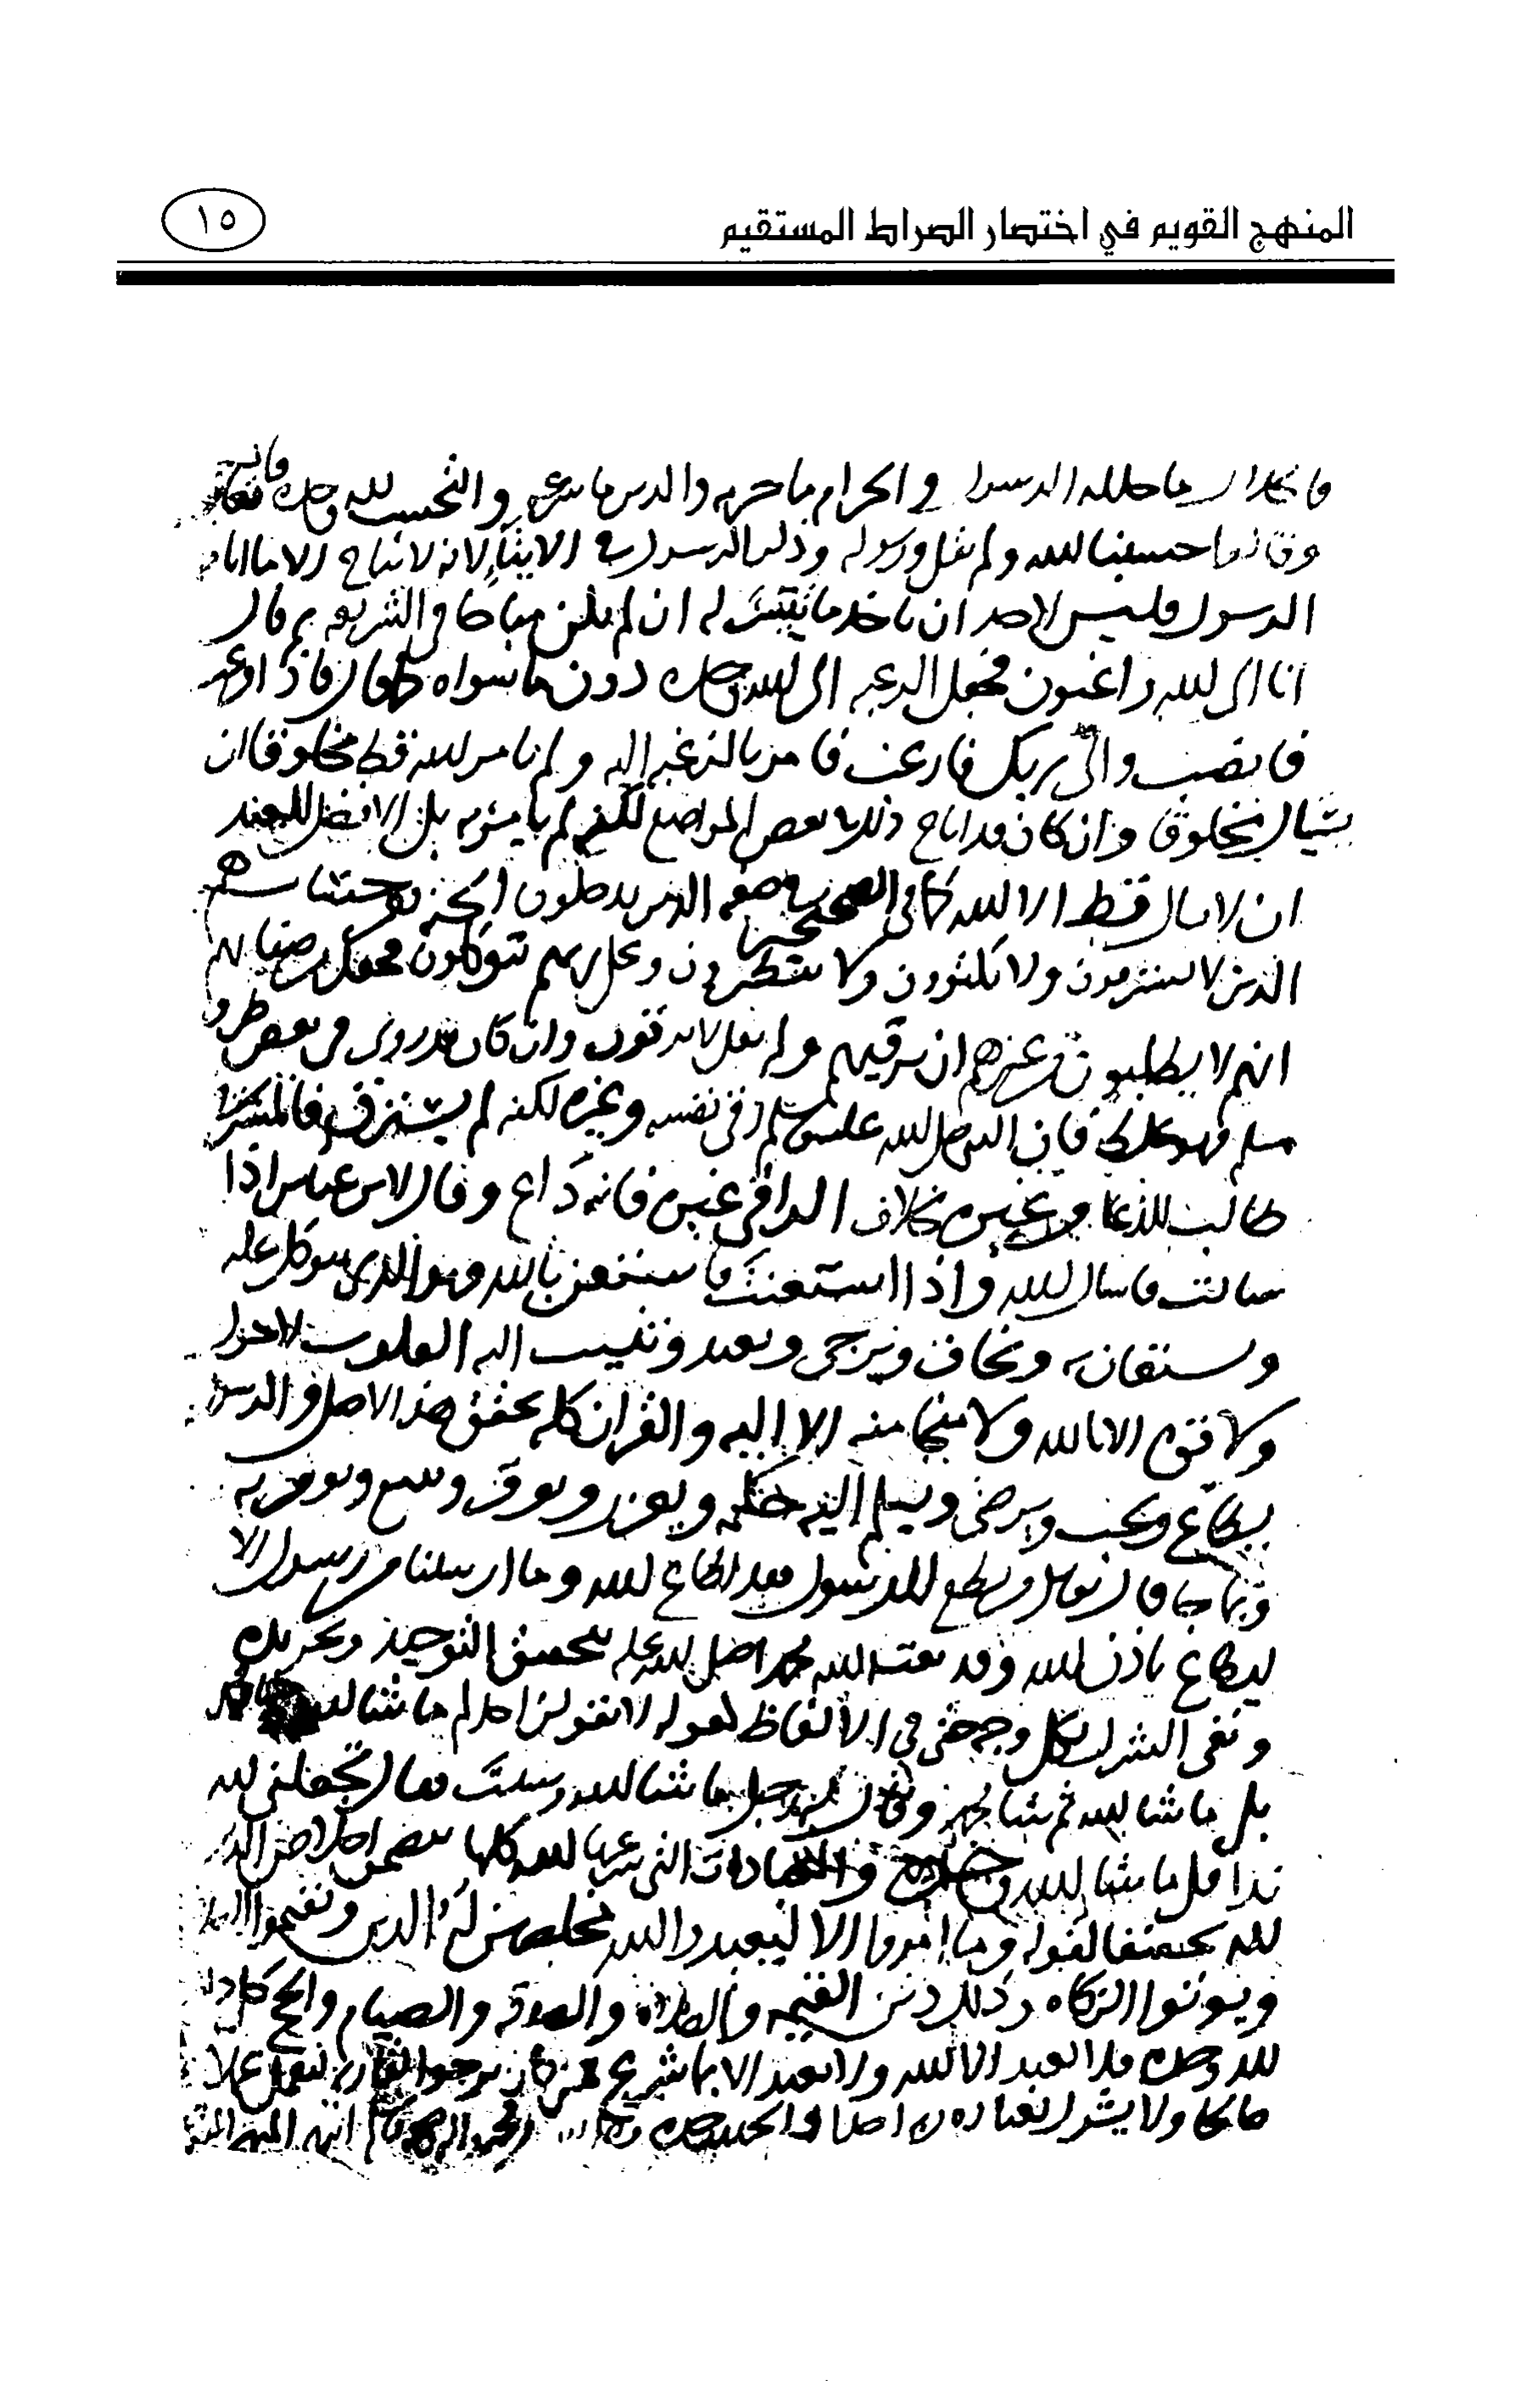 المنهج القويم في اختصار الصراط المستقيم
١٥
فالحلال ما حلله الرسول والحرام ما حرمه والدين ما شرعه والتحسب لله وحده
وقالوا حسبنا الله ولم يقل ورسوله وذكر الرسول في الايتاء لانه لا يباح الا ما اباحه
الرسول فليس لاحد ان ياخذ ما تيسر له ان لم يكن مباحا في الشريعه ثم قال
انا الى الله راغبون فجعل الرغبه الى الله وحده دون ما سواه كما قال فاذا فرغت
فانصب والى ربك فارغب فامر بالرغبه اليه ولم يامر الله قط مخلوقا ان
يسال مخلوقا وان كان قد اباح ذلك في بعض المواضع لكنه لم يامر به بل الافضل للعبد
ان لا يسال قط الا الله كما في الصحيحين في صفه الذين يدخلون الجنه بغير حساب هم
الذين لا يسترقون ولا يكتوون ولا يتطيرون وعلى ربهم يتوكلون فجعل من صفاتهم
انهم لا يطلبون من غيرهم ان يرقيهم ولم يقل لا يرقون وان كان قد روي في بعض طرق
مسلم فهو غلط فان النبي صلى الله عليه وسلم رقى نفسه وغيره لكنه لم يسترق فالمسترقي
طالب للدعا من غيره بخلاف الراقي غيره فانه داع وقال لابن عباس اذا
سالت فاسال الله واذا استعنت فاستعن بالله فهو الذي يتوكل عليه
ويستعان به ويخاف ويرجى ويعبد وتنيب اليه القلوب لا حول
ولا قوه الا بالله ولا منجا منه الا اليه والقران كله يحقق هذا الاصل والرسول
يطاع ويحب ويرضى ويسلم اليه حكمه ويعزر ويوقر ويتبع ويومن به
وبما جا به قال تعالى من يطع الرسول فقد اطاع الله وما ارسلنا من رسول الا
ليطاع باذن الله وقد بعث الله محمدا صلى الله عليه بتحقيق التوحيد وتجريده
ونفي الشرك بكل وجه حتى في الالفاظ كقوله لا يقولن احدكم ما شا الله وشا محمد
بل ما شا الله ثم شا محمد وقال له رجل ما شا الله وشئت فقال اتجعلني لله
ندا قل ما شا الله وحده والعبادات التي شرعها الله كلها تتضمن اخلاص الدين
لله تحقيقا لقوله وما امروا الا ليعبدوا الله مخلصين له الدين ويقيموا الصلاه
ويوتوا الزكاه وذلك دين القيمه فالصلاه والصدقه والصيام والحج كل ذلك
لله وحده فلا نعبد الا الله ولا نعبد الا بما شرع فمن كان يرجو لقا ربه فليعمل عملا
صالحا ولا يشرك بعباده ربه احدا والحمد لله وحده